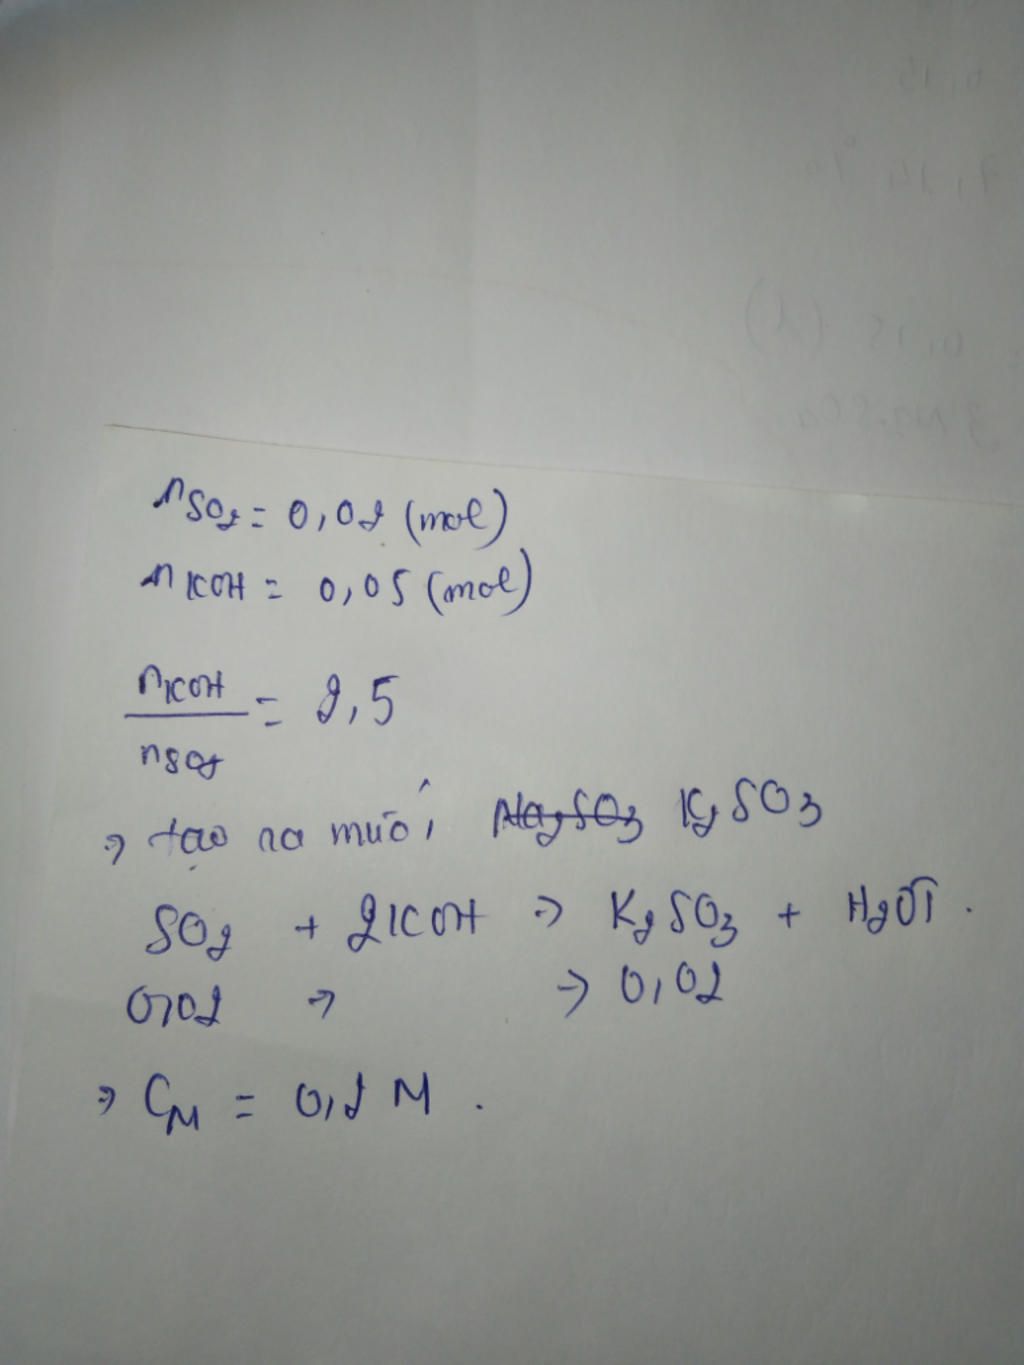 nSO2 = 0,02 (mol)
nKOH = 0,05 (mol)
nKOH
nSO2
= 2,5
⇒ tạo ra muối Na2SO3 K2SO3
SO2 + 2KOH → K2SO3 + H2O↑.
0,02 → → 0,02
⇒ CM = 0,2 M.